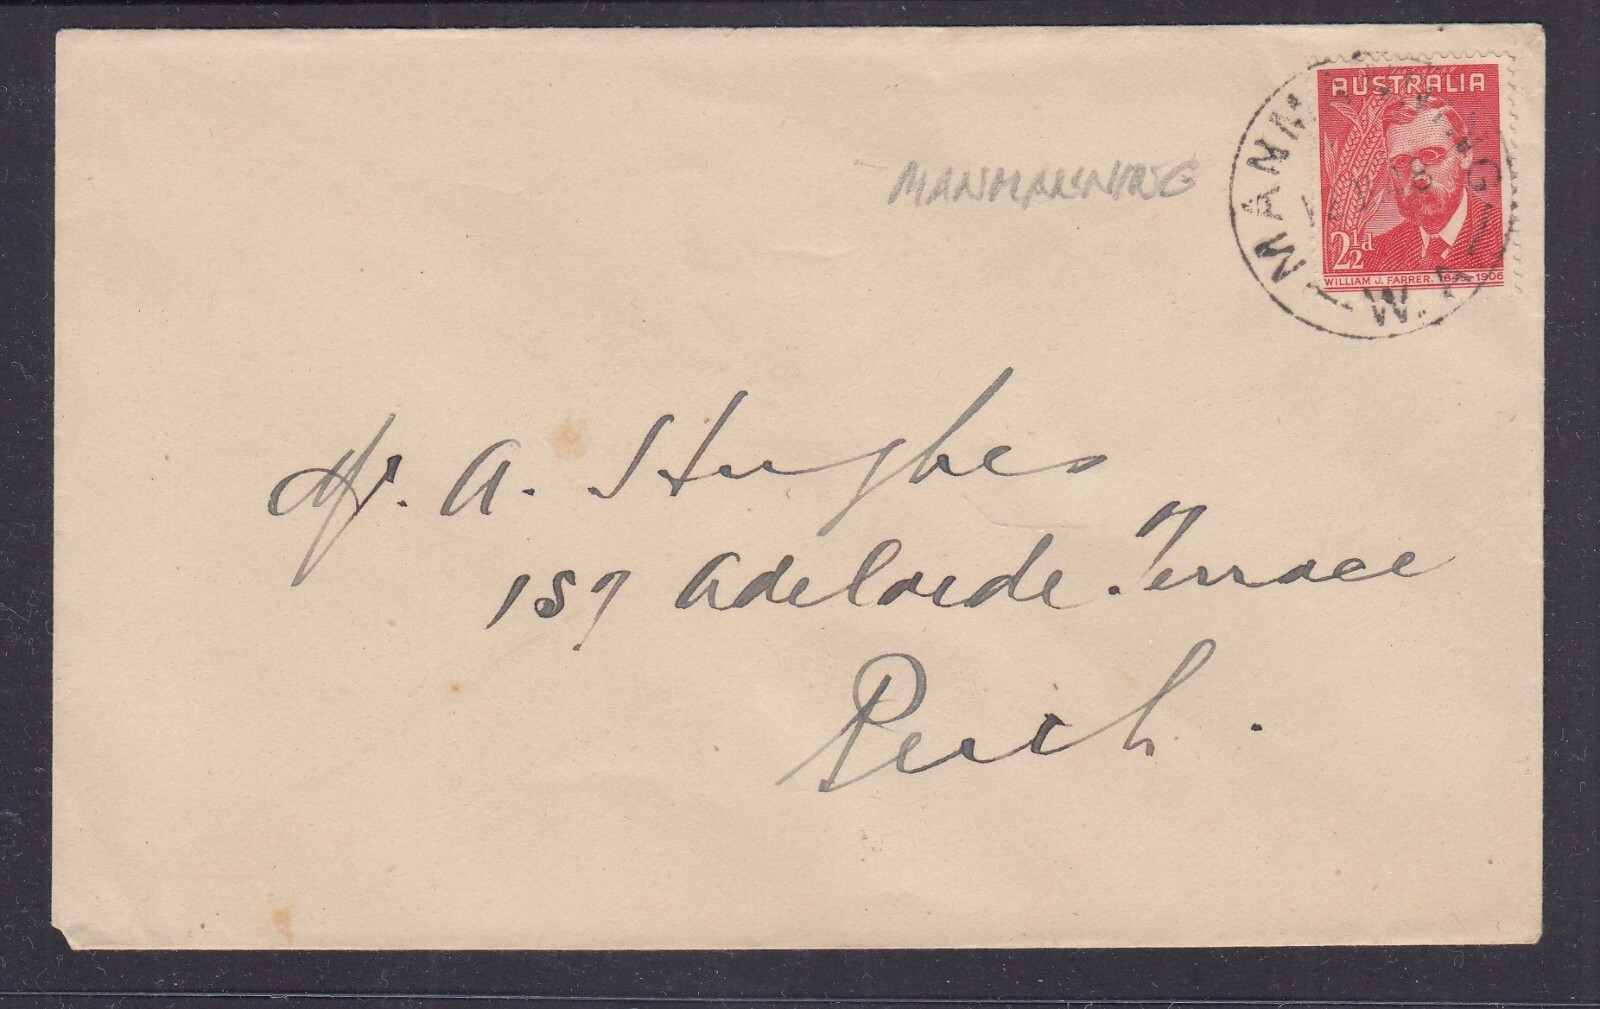 AUSTRALIA
2½d
WILLIAM J. FARRER. 1845-1906
MANMANNING
48
W.A
MANMANNING
Mr. A. Hughes
157 Adelaide Terrace
Perth.